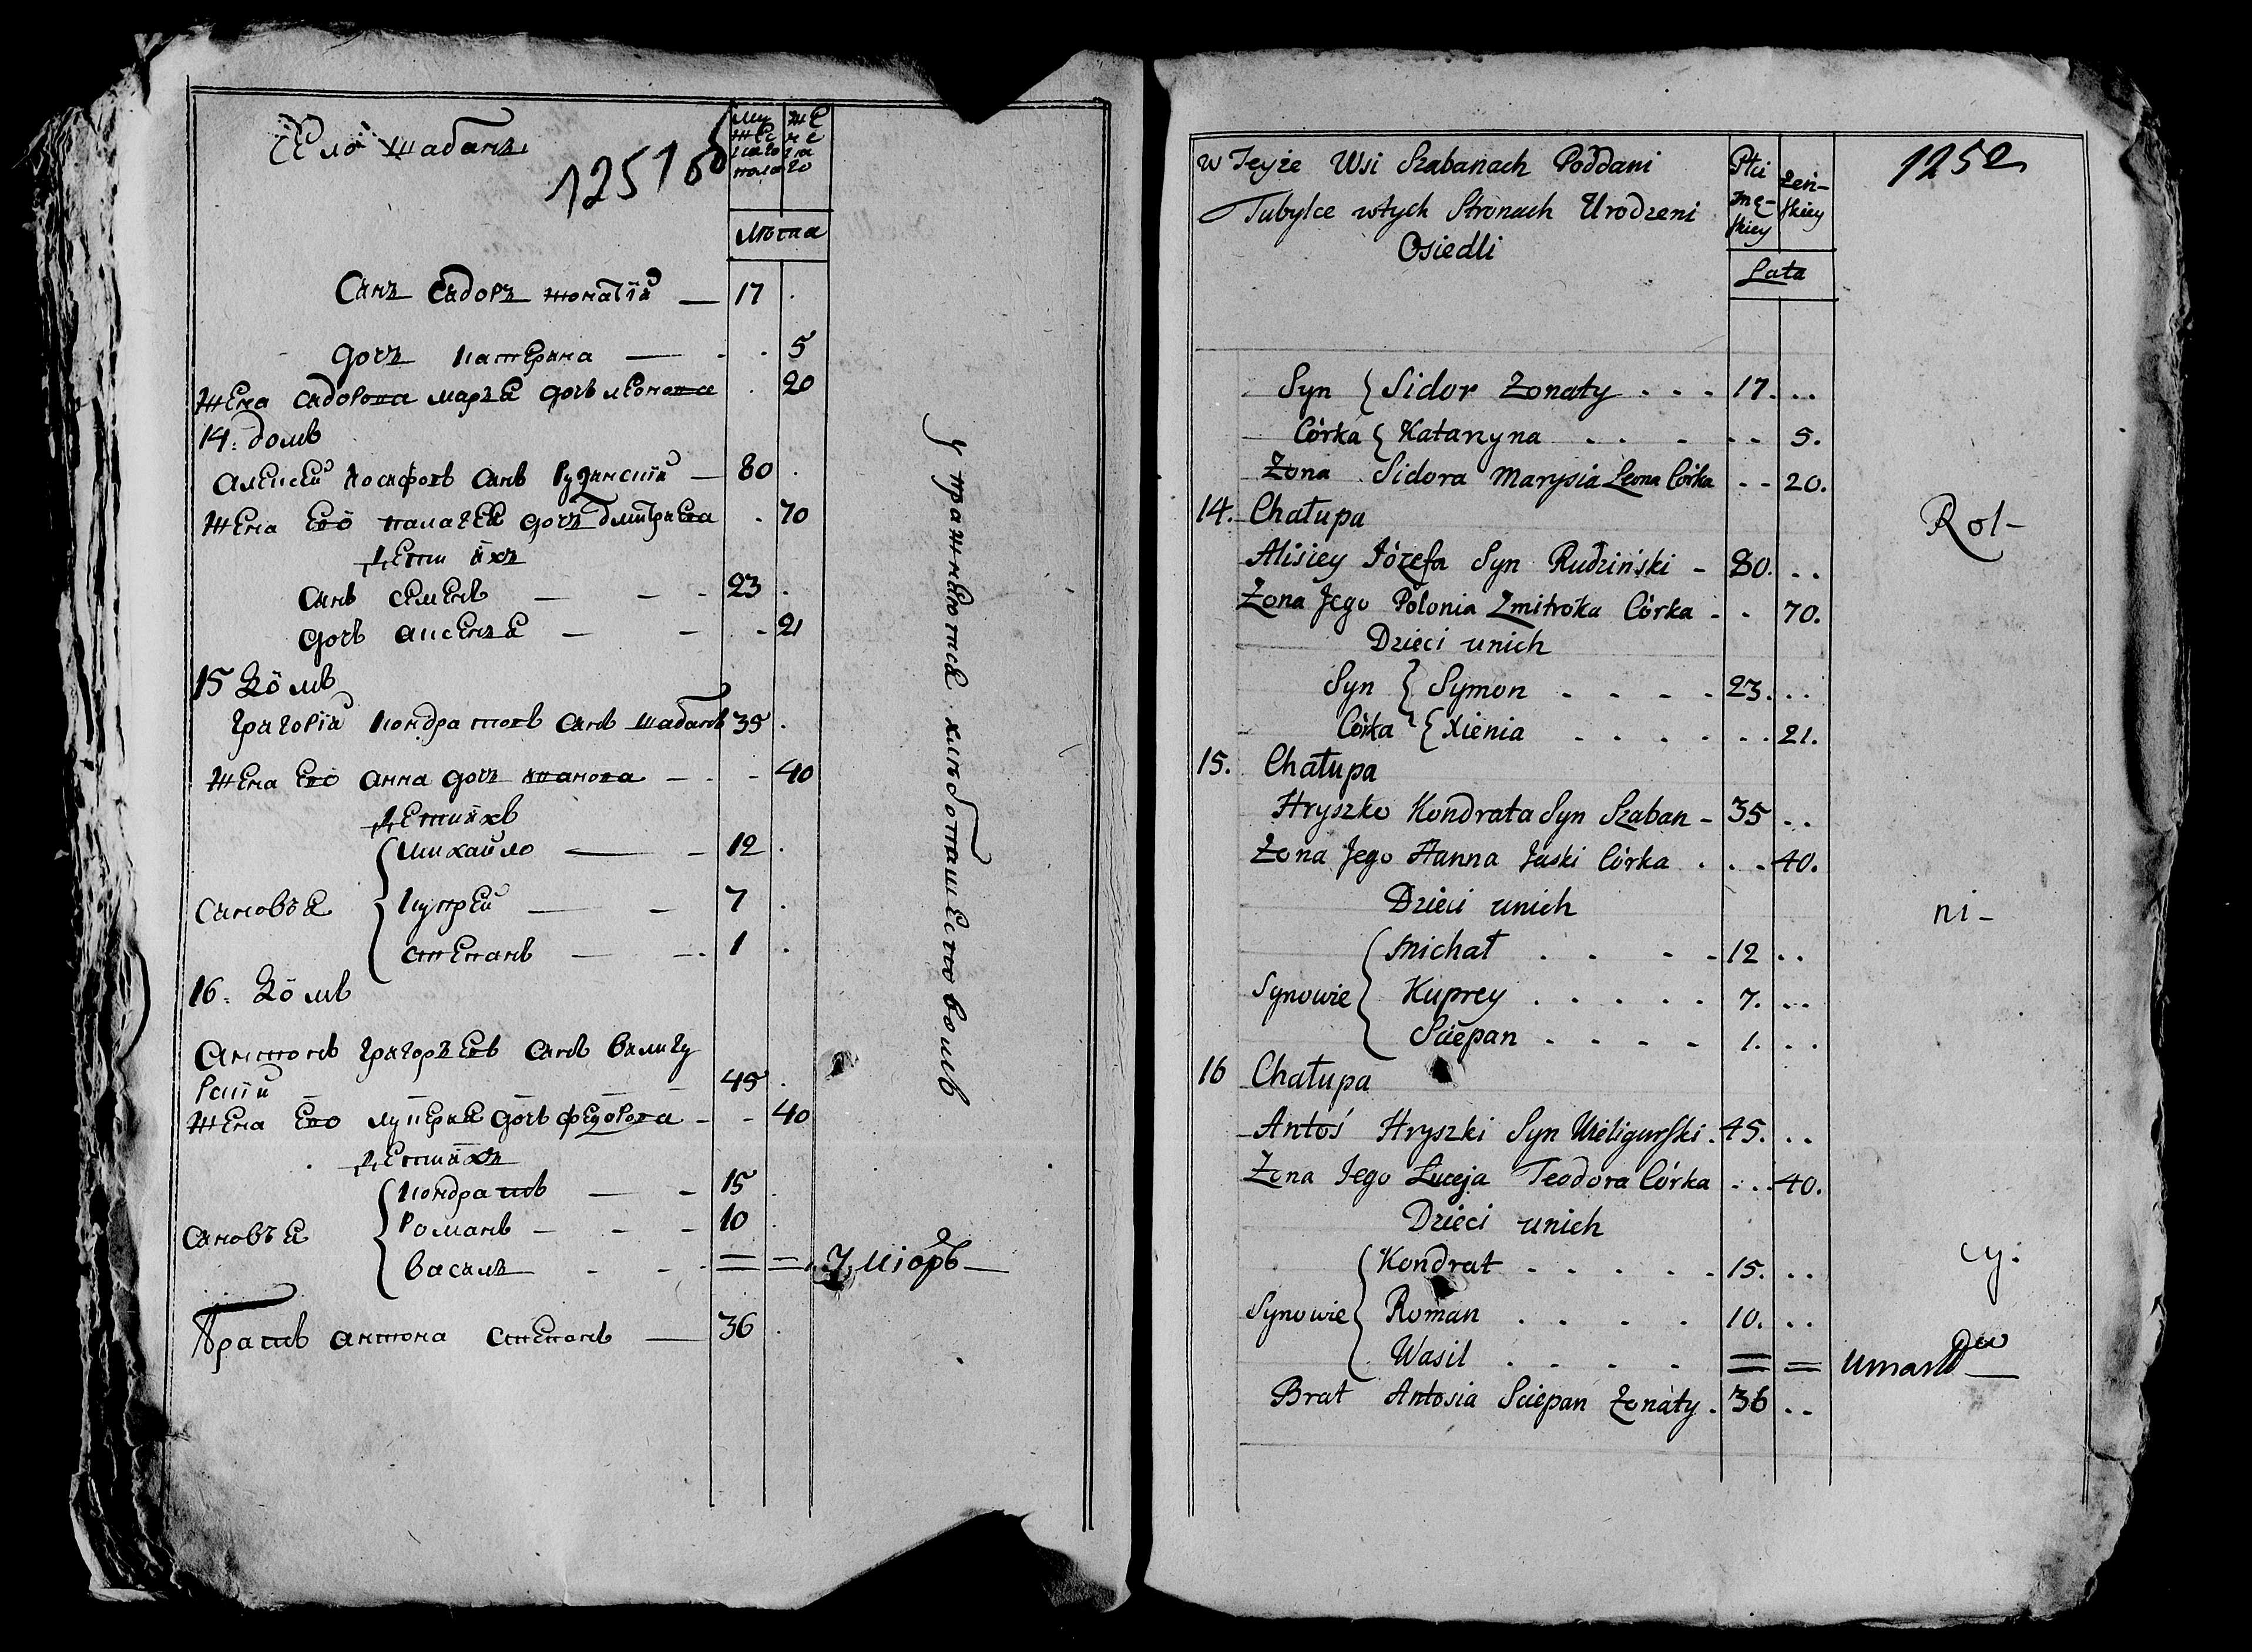 Село шабаны
12516
му
жес
каго
пола
же
нс
ка
го
лѣтаа
Сынъ Сидоръ жонатій — 17
дочъ катерына — 5
жена сидорова марья дочъ леонова 20
14: домъ
алексей іосифовъ сынъ Рудзинскій — 80
жена его палагея дочъ дмитриева 70
Дети ихъ
сынъ семенъ — 23
дочъ аксенья — 21
15 Домъ
григорій кондратовъ сынъ шабанъ 35
жена его анна дочъ иванова — 40
Дети ихъ
михайло — 12
сыновья купрей — 7
степанъ — 1
16: Домъ
антонъ григорьевъ сынъ велигу
рскій 45
жена его лукерья дочъ федорова — 40
Дети ихъ
кондратъ — 15
сыновья Романъ — 10
василь — = = Умюръ —
Братъ антона степанъ — 36
упражняются хлебопашествомъ
w Teyże Wsi Szabanach Poddani
Tubylce wtych Stronach Urodzeni
Osiedli
Płci
mę-
skiey
żeń-
skiey
Lata
1252
Syn { Sidor Żonaty . . . 17. ..
Córka { Katarzyna . . - - - 5.
Żona Sidora Marysia Leona Córka - - 20.
14. Chałupa
Alisiey Józefa Syn Rudziński - 80. ..
Żona Jego Polonia Zmitroka Córka - - 70.
Dzieci unich
Syn { Symon . - . - 23. ..
Córka { Xienia . . . . . . . 21.
15. Chałupa
Hryszko Kondrata Syn Szaban - 35 ..
Żona Jego Hanna Jaski Córka . . . 40.
Dzieci unich
Michał . . - - 12 ..
Synowie Kuprey . . . . . 7. ..
Sciepan . . . - 1. ..
16 Chałupa
Antoś Hryszki Syn Weligurski . 45. ..
Żona Jego Łuceja Teodora Córka . . . 40.
Dzieci unich
Kondrat . . . . . 15. ..
Synowie Roman . . . . 10. ..
Wasil . . . . = = Umarł —
Brat Antosia Sciepan Żonaty . 36 ..
Rol-
ni-
cy.